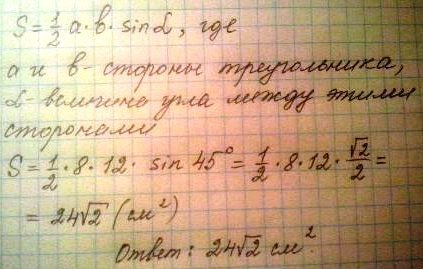 S = 1/2 a · b · sin α, где
a и b - стороны треугольника,
α - величина угла между этими
сторонами
S = 1/2 · 8 · 12 · sin 45° = 1/2 · 8 · 12 · √2/2 =
= 24√2 (см²)
Ответ: 24√2 см².